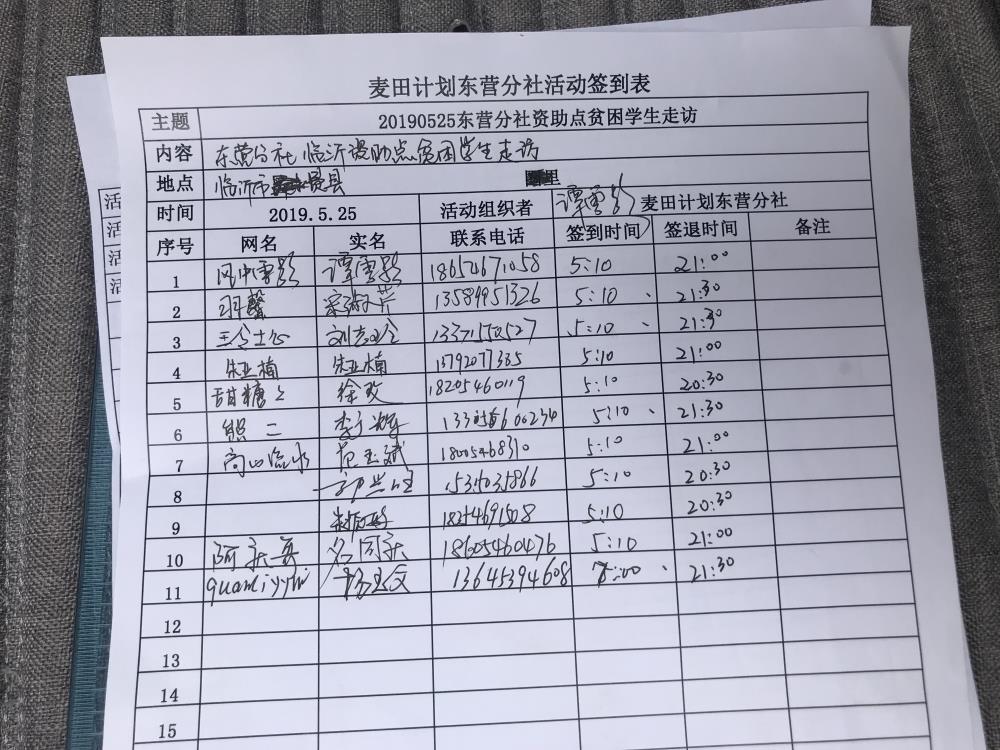 麦田计划东营分社活动签到表
主题 20190525东营分社资助点贫困学生走访
内容 东营分社临沂资助点贫困学生走访
地点 临沂市 县 里
时间 2019.5.25 活动组织者 谭雪影 麦田计划东营分社
序号 网名 实名 联系电话 签到时间 签退时间 备注
1 风中雪影 谭雪影 18654671058 5:10 21:00
2 羽馨 宋淑芹 13589951326 5:10 21:30
3 13371550527 5:10 21:30
4 朱亚楠 朱亚楠 13792077385 5:10 21:00
5 甜糖 徐政 18205460119 5:10 20:30
6 熊二 李 辉 5:10 21:30
7 高山流水 范玉斌 18005468310 5:10 21:00
8 15315031866 5:10 20:30
9 18254691508 5:10 20:30
10 阿 18605460476 5:10 21:00
11 13645394608 7:00 21:30
12
13
14
15
活
活
活
活